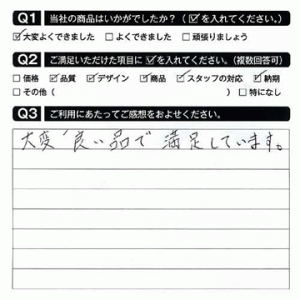 Q1 当社の商品はいかがでしたか？（☑を入れてください。）
☑大変よくできました □よくできました □頑張りましょう
Q2 ご満足いただけた項目に☑を入れてください。（複数回答可）
□価格 ☑品質 ☑デザイン ☑商品 ☑スタッフの対応 ☑納期
□その他（ ）□特になし
Q3 ご利用にあたってご感想をおよせください。
大変良い品で満足しています。